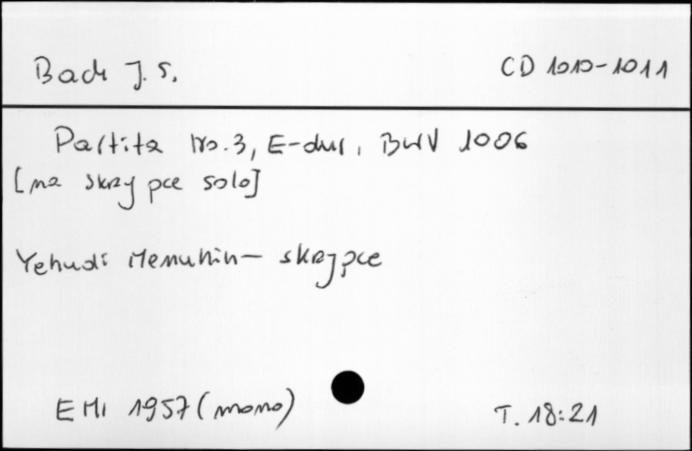 Bach J. S.
CD 1010-1011
Partita No. 3, E-dur, BWV 1006
[na skrzypce solo]
Yehudi Menuhin - skrzypce
EMI 1957 (mono)
T. 18:21